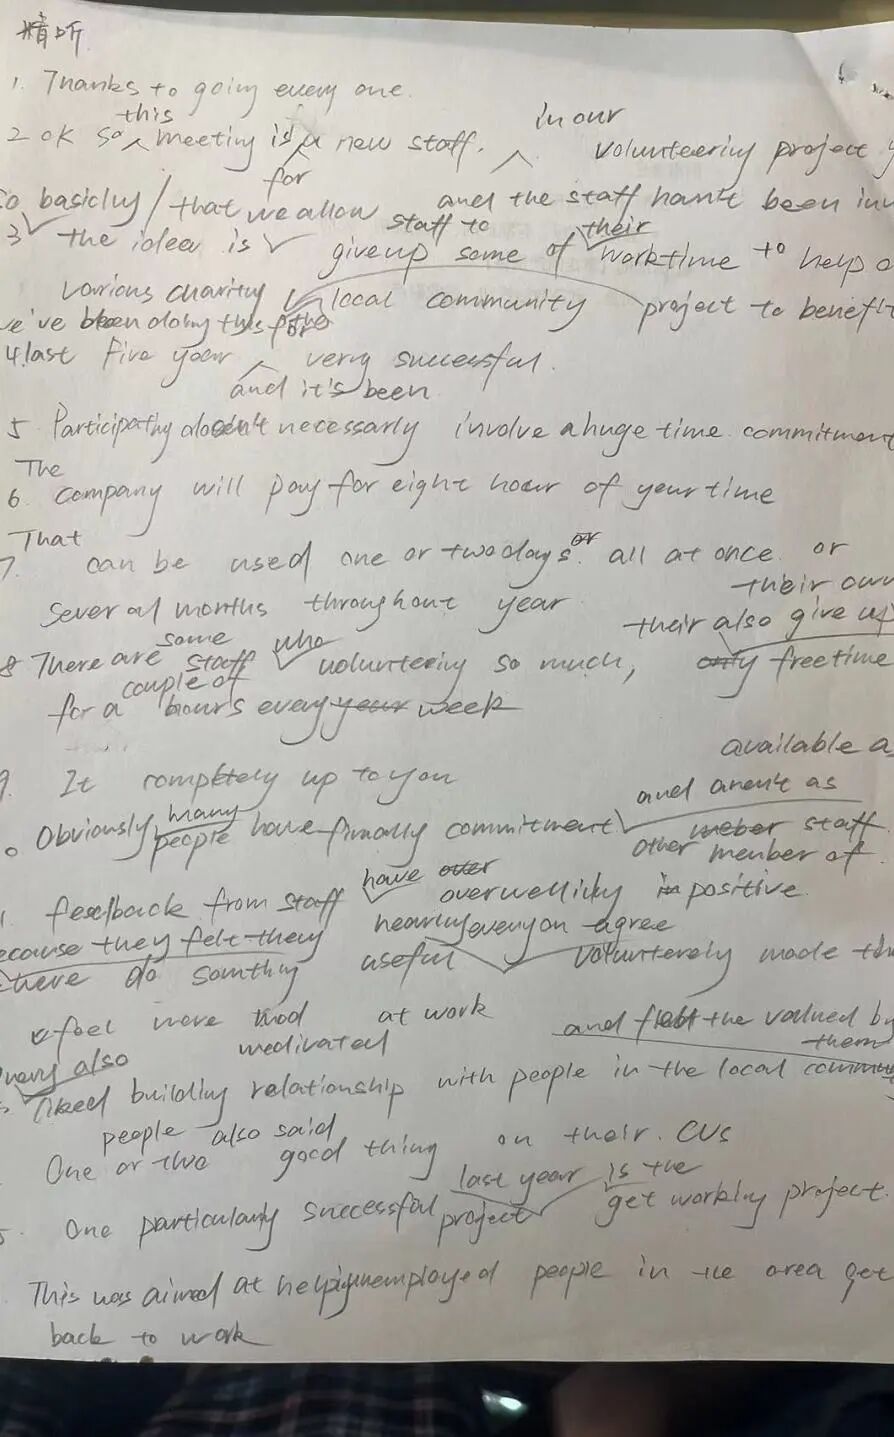 精听
1. Thanks to going every one.
this in our
2 OK so meeting is a new staff, volunteering project
for
so basiclly / that we allow and the staff han't been inv
staff to their
3 the idea is giveup some of worktime to help o
various charity local community project to benefit
we've been doing this for the
4. last five year very successful.
and it's been
5 Participathy doesn't necessarly involve a huge time commitment
The
6. company will pay for eight hour of your time
That or
7. can be used one or two days all at once or
their own
several months throughout year
some who their also give up
8 There are staff volunteering so much, only freetime
couple of
for a hours every year week
available a
9. It completely up to you
and aren't as
many
o Obviously people have finally commitment meber staff
other member of
have over
feedback from staff overwellicky in positive.
nearly everyon agree
ecause they felt they
there do somthing useful volunterely made th
feel more mod at work and felt the valued by
them
many also medivated
liked building relationship with people in the local commu
people also said
One or two good thing on their CVs
last year is the
One particularly successful project get working project.
This was aimed at helping unemployed people in the area get
back to work